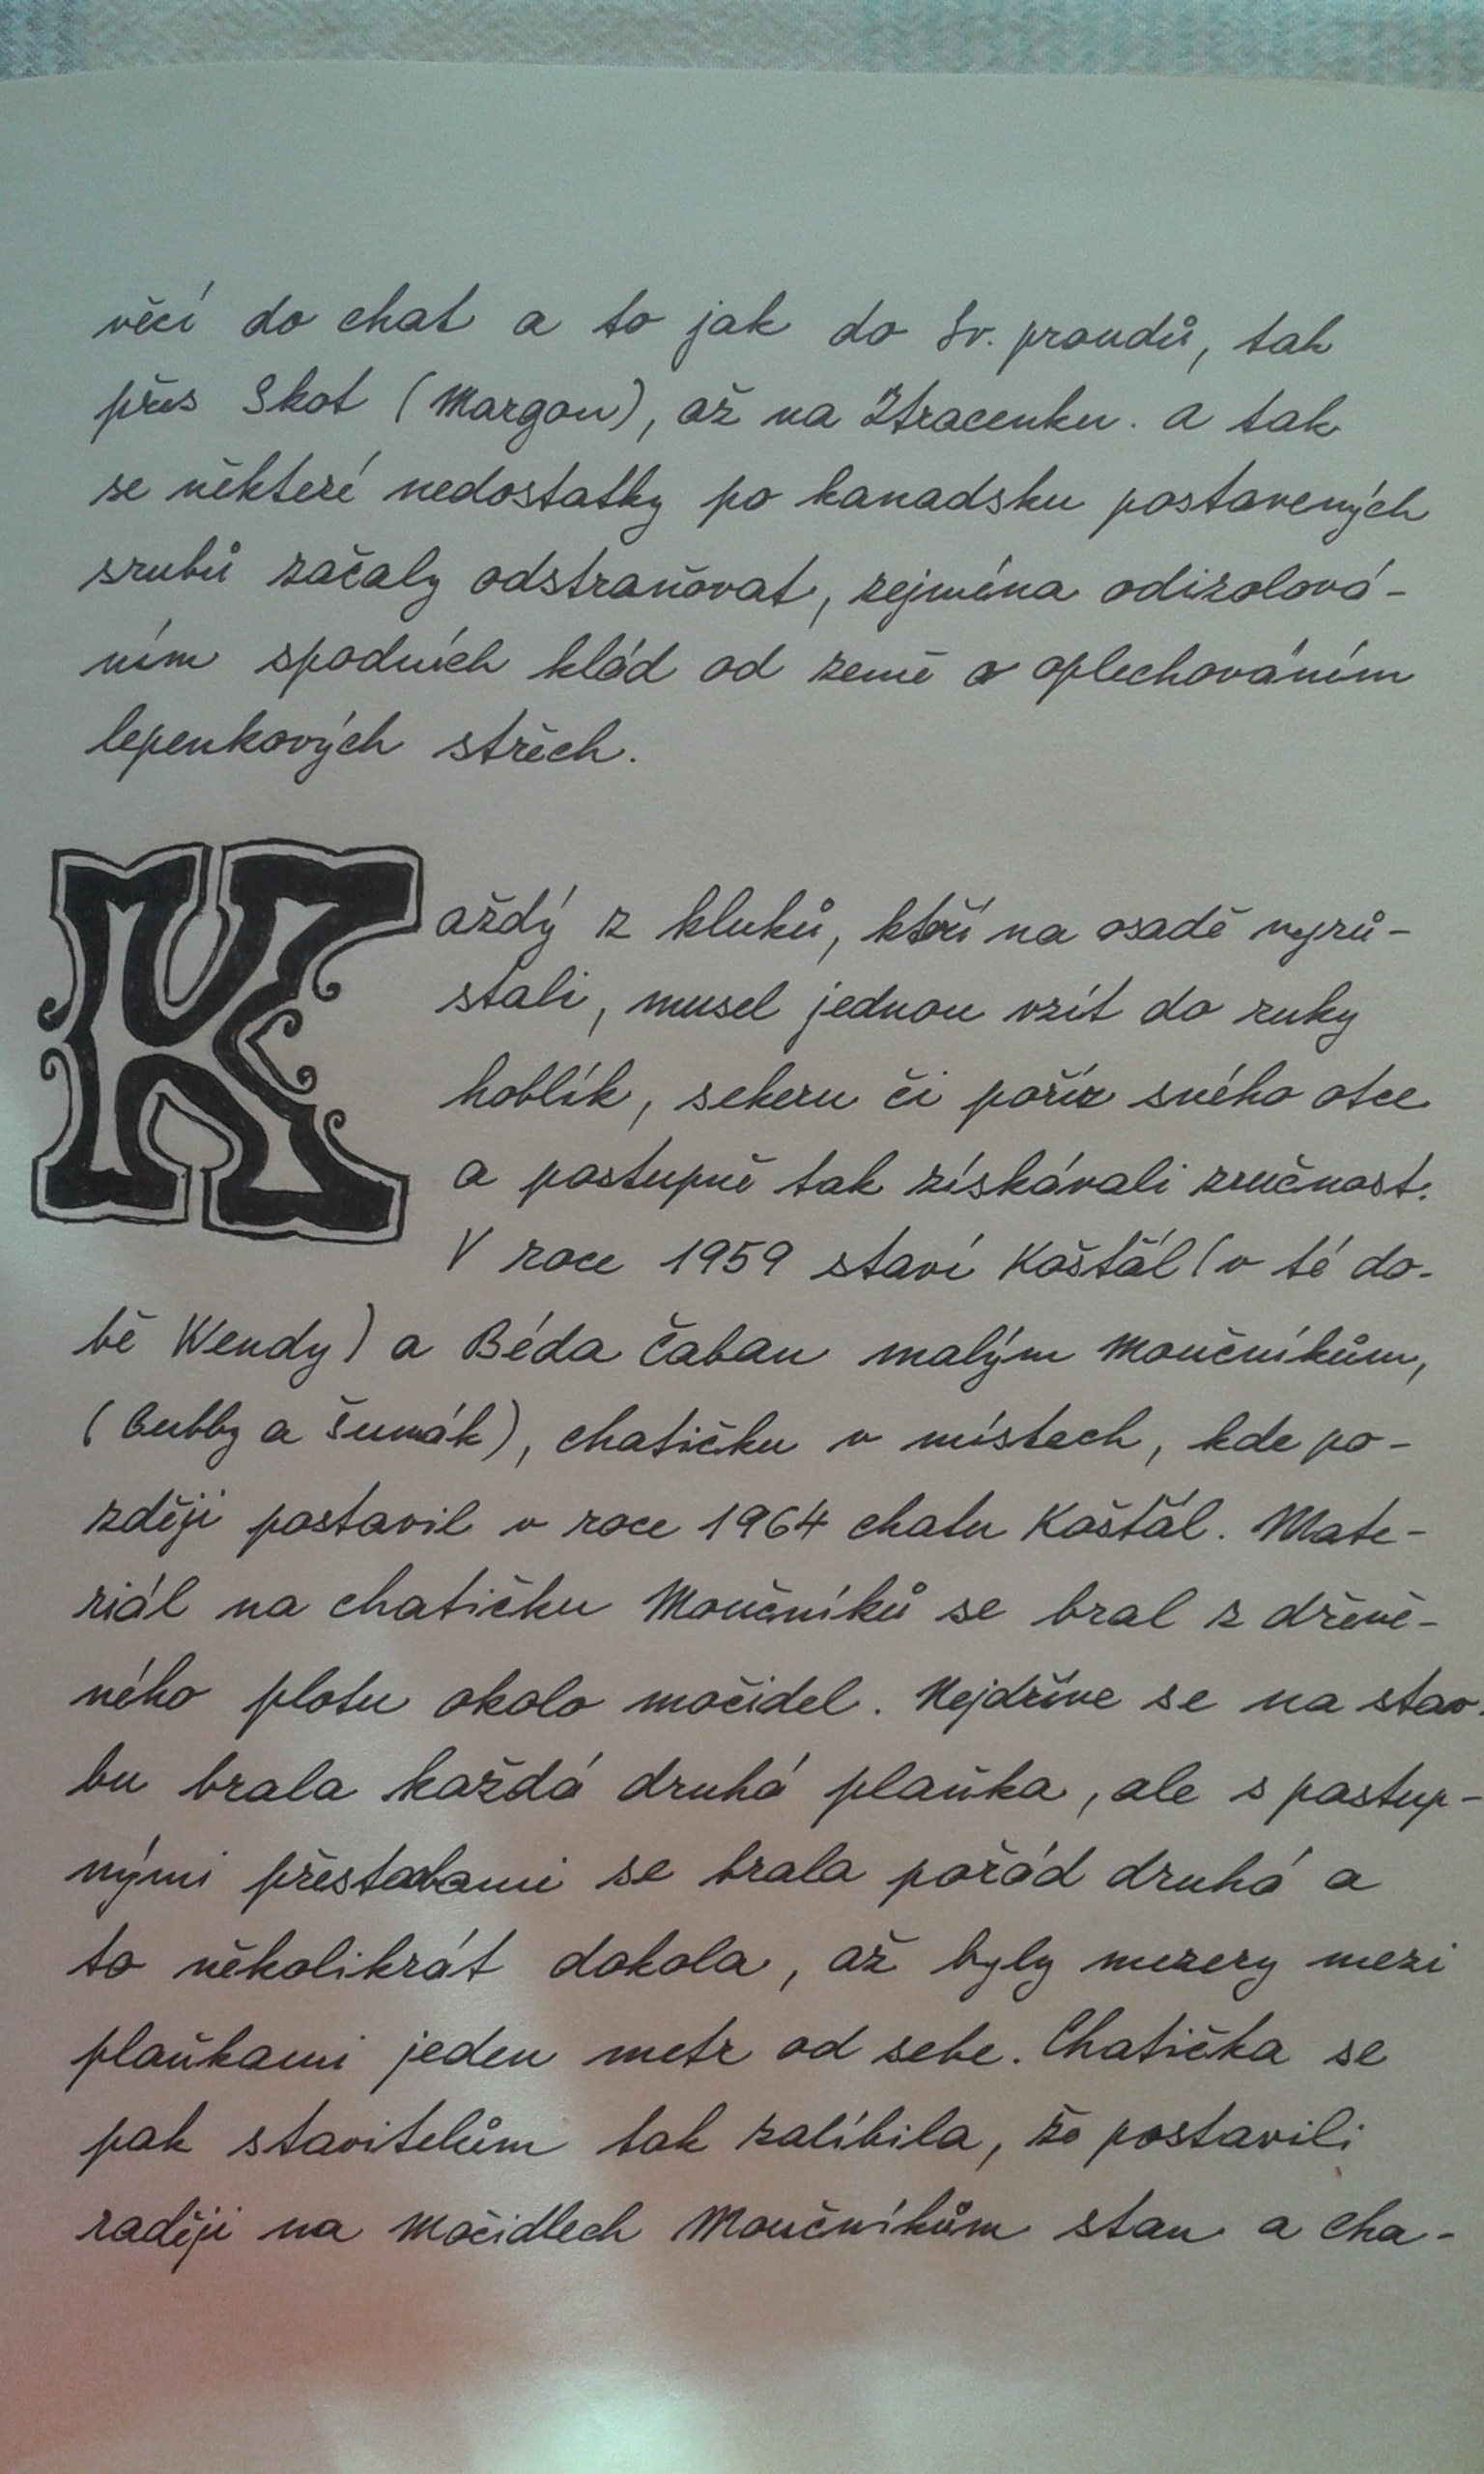 věcí do chat a to jak do Sv. proudů, tak
přes Skot (Margon), až na Ztracenku. a tak
se některé nedostatky po kanadsku postavených
srubů začaly odstraňovat, zejména odizolová-
ním spodních klád od země a oplechováním
lepenkových střech.
Každý z kluků, kteří na osadě vyrů-
stali, musel jednou vzít do ruky
hoblík, sekeru či pořír svého otce
a postupně tak získávali zručnost.
V roce 1959 staví Košťál (v té do-
bě Wendy) a Béda Čaban malým Moučníkům,
(Gubby a Šumák), chatičku v místech, kde po-
zději postavil v roce 1964 chatu Košťál. Mate-
riál na chatičku Moučníků se bral z dřevě-
ného plotu okolo močidel. Nejdříve se na stav-
bu brala každá druhá plaňka, ale s postup-
nými přestavbami se brala pořád druhá a
to několikrát dokola, až byly mezery mezi
plaňkami jeden metr od sebe. Chatička se
pak stavitelům tak zalíbila, že postavili
raději na Močidlech Moučníkům stan a cha-